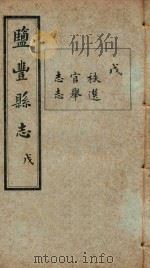 戊
秩官志
選舉志
鹽豐縣志 戊